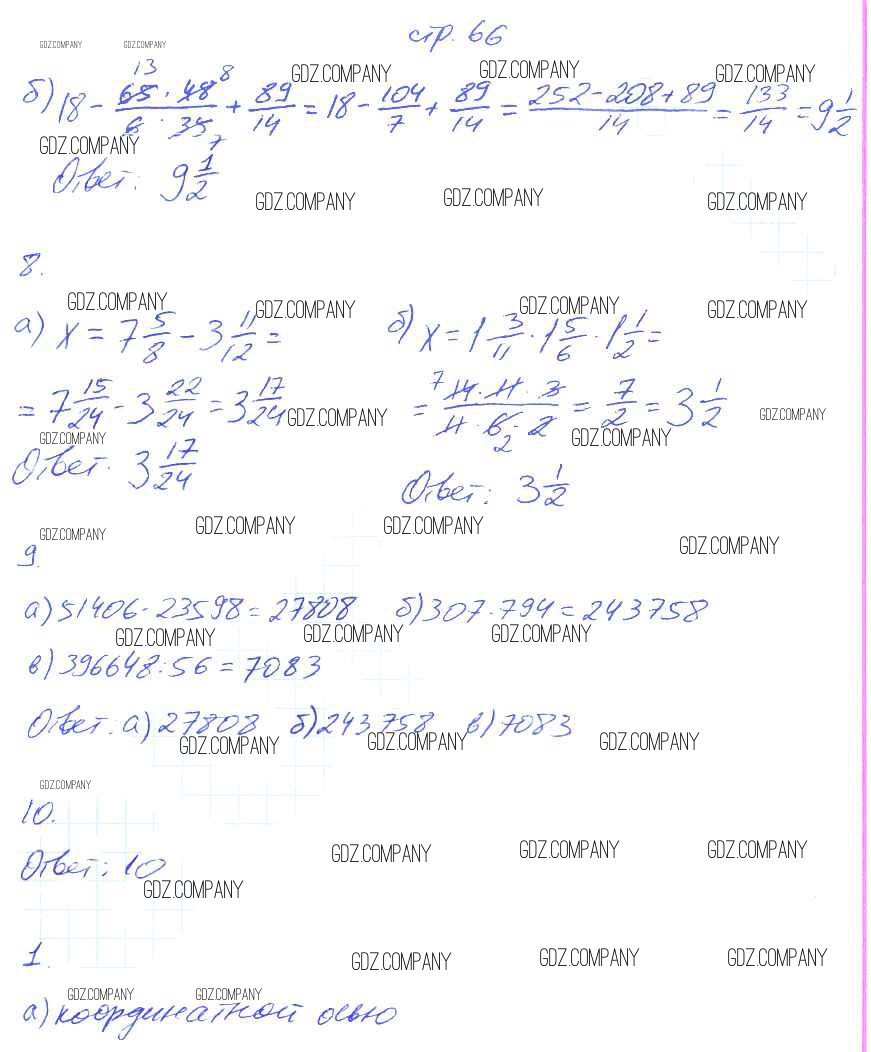 стр. 66
GDZ.COMPANY GDZ.COMPANY
13 8
б) 18 - 65 · 48 / 6 · 35 + 89/14 = 18 - 104/7 + 89/14 = 252 - 208 + 89 / 14 = 133/14 = 9 1/2
7
GDZ.COMPANY GDZ.COMPANY GDZ.COMPANY
GDZ.COMPANY
Ответ: 9 1/2
GDZ.COMPANY GDZ.COMPANY GDZ.COMPANY
8.
GDZ.COMPANY GDZ.COMPANY GDZ.COMPANY GDZ.COMPANY
а) x = 7 5/8 - 3 11/12 =
= 7 15/24 - 3 22/24 = 3 17/24
Ответ. 3 17/24
б) x = 1 3/11 · 1 5/6 · 1 1/2 =
= 7 14 · 11 · 3 / 11 · 6 2 · 2 = 7/2 = 3 1/2
Ответ: 3 1/2
GDZ.COMPANY GDZ.COMPANY GDZ.COMPANY
GDZ.COMPANY
GDZ.COMPANY GDZ.COMPANY GDZ.COMPANY GDZ.COMPANY
9.
а) 51406 - 23598 = 27808 б) 307 · 794 = 243758
GDZ.COMPANY GDZ.COMPANY GDZ.COMPANY
в) 396648 : 56 = 7083
Ответ: а) 27808 б) 243758 в) 7083
GDZ.COMPANY GDZ.COMPANY GDZ.COMPANY
GDZ.COMPANY
10.
GDZ.COMPANY GDZ.COMPANY GDZ.COMPANY
Ответ: 10
GDZ.COMPANY
1.
GDZ.COMPANY GDZ.COMPANY GDZ.COMPANY
GDZ.COMPANY GDZ.COMPANY
а) координатной осью